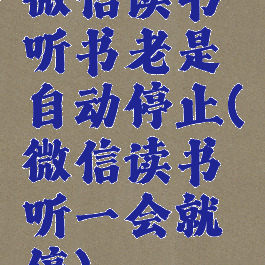 微信读书
听书老是
自动停止(
微信读书
听一会就
停)